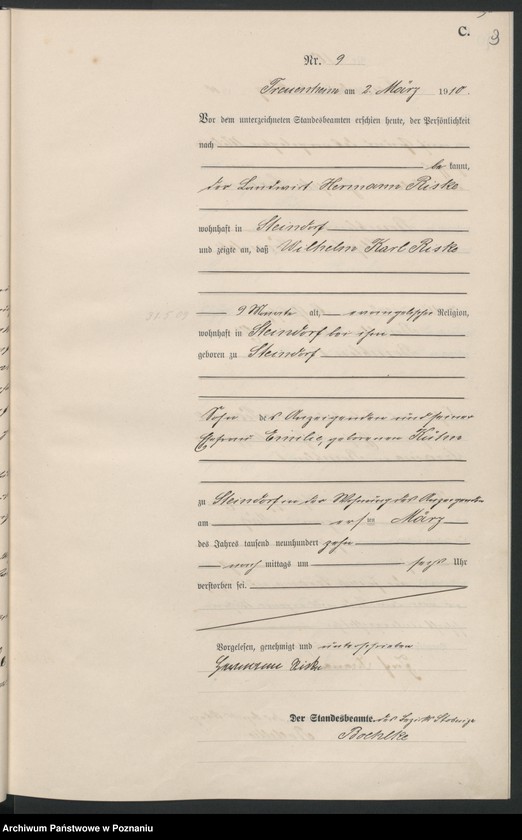 C.
3
Nr. 9
am 2. März 1910.
Vor dem unterzeichneten Standesbeamten erschien heute, der Persönlichkeit
nach
be kannt,
der Landwirt Hermann Riske
wohnhaft in Steindorf
und zeigte an, daß Wilhelm Karl Riske
9 Monate alt, evangelischer Religion,
wohnhaft in Steindorf bei ihm
geboren zu Steindorf
Sohn des Anzeigenden und seiner
Ehefrau Emilie, geborenen Kühn
zu Steindorf in der Wohnung des Anzeigenden
am ersten März
des Jahres tausend neunhundert zehn
nach mittags um sechs Uhr
verstorben sei.
Vorgelesen, genehmigt und unterschrieben
Hermann Riske
Der Standesbeamte. des Bezirks
Boehlke
Archiwum Państwowe w Poznaniu